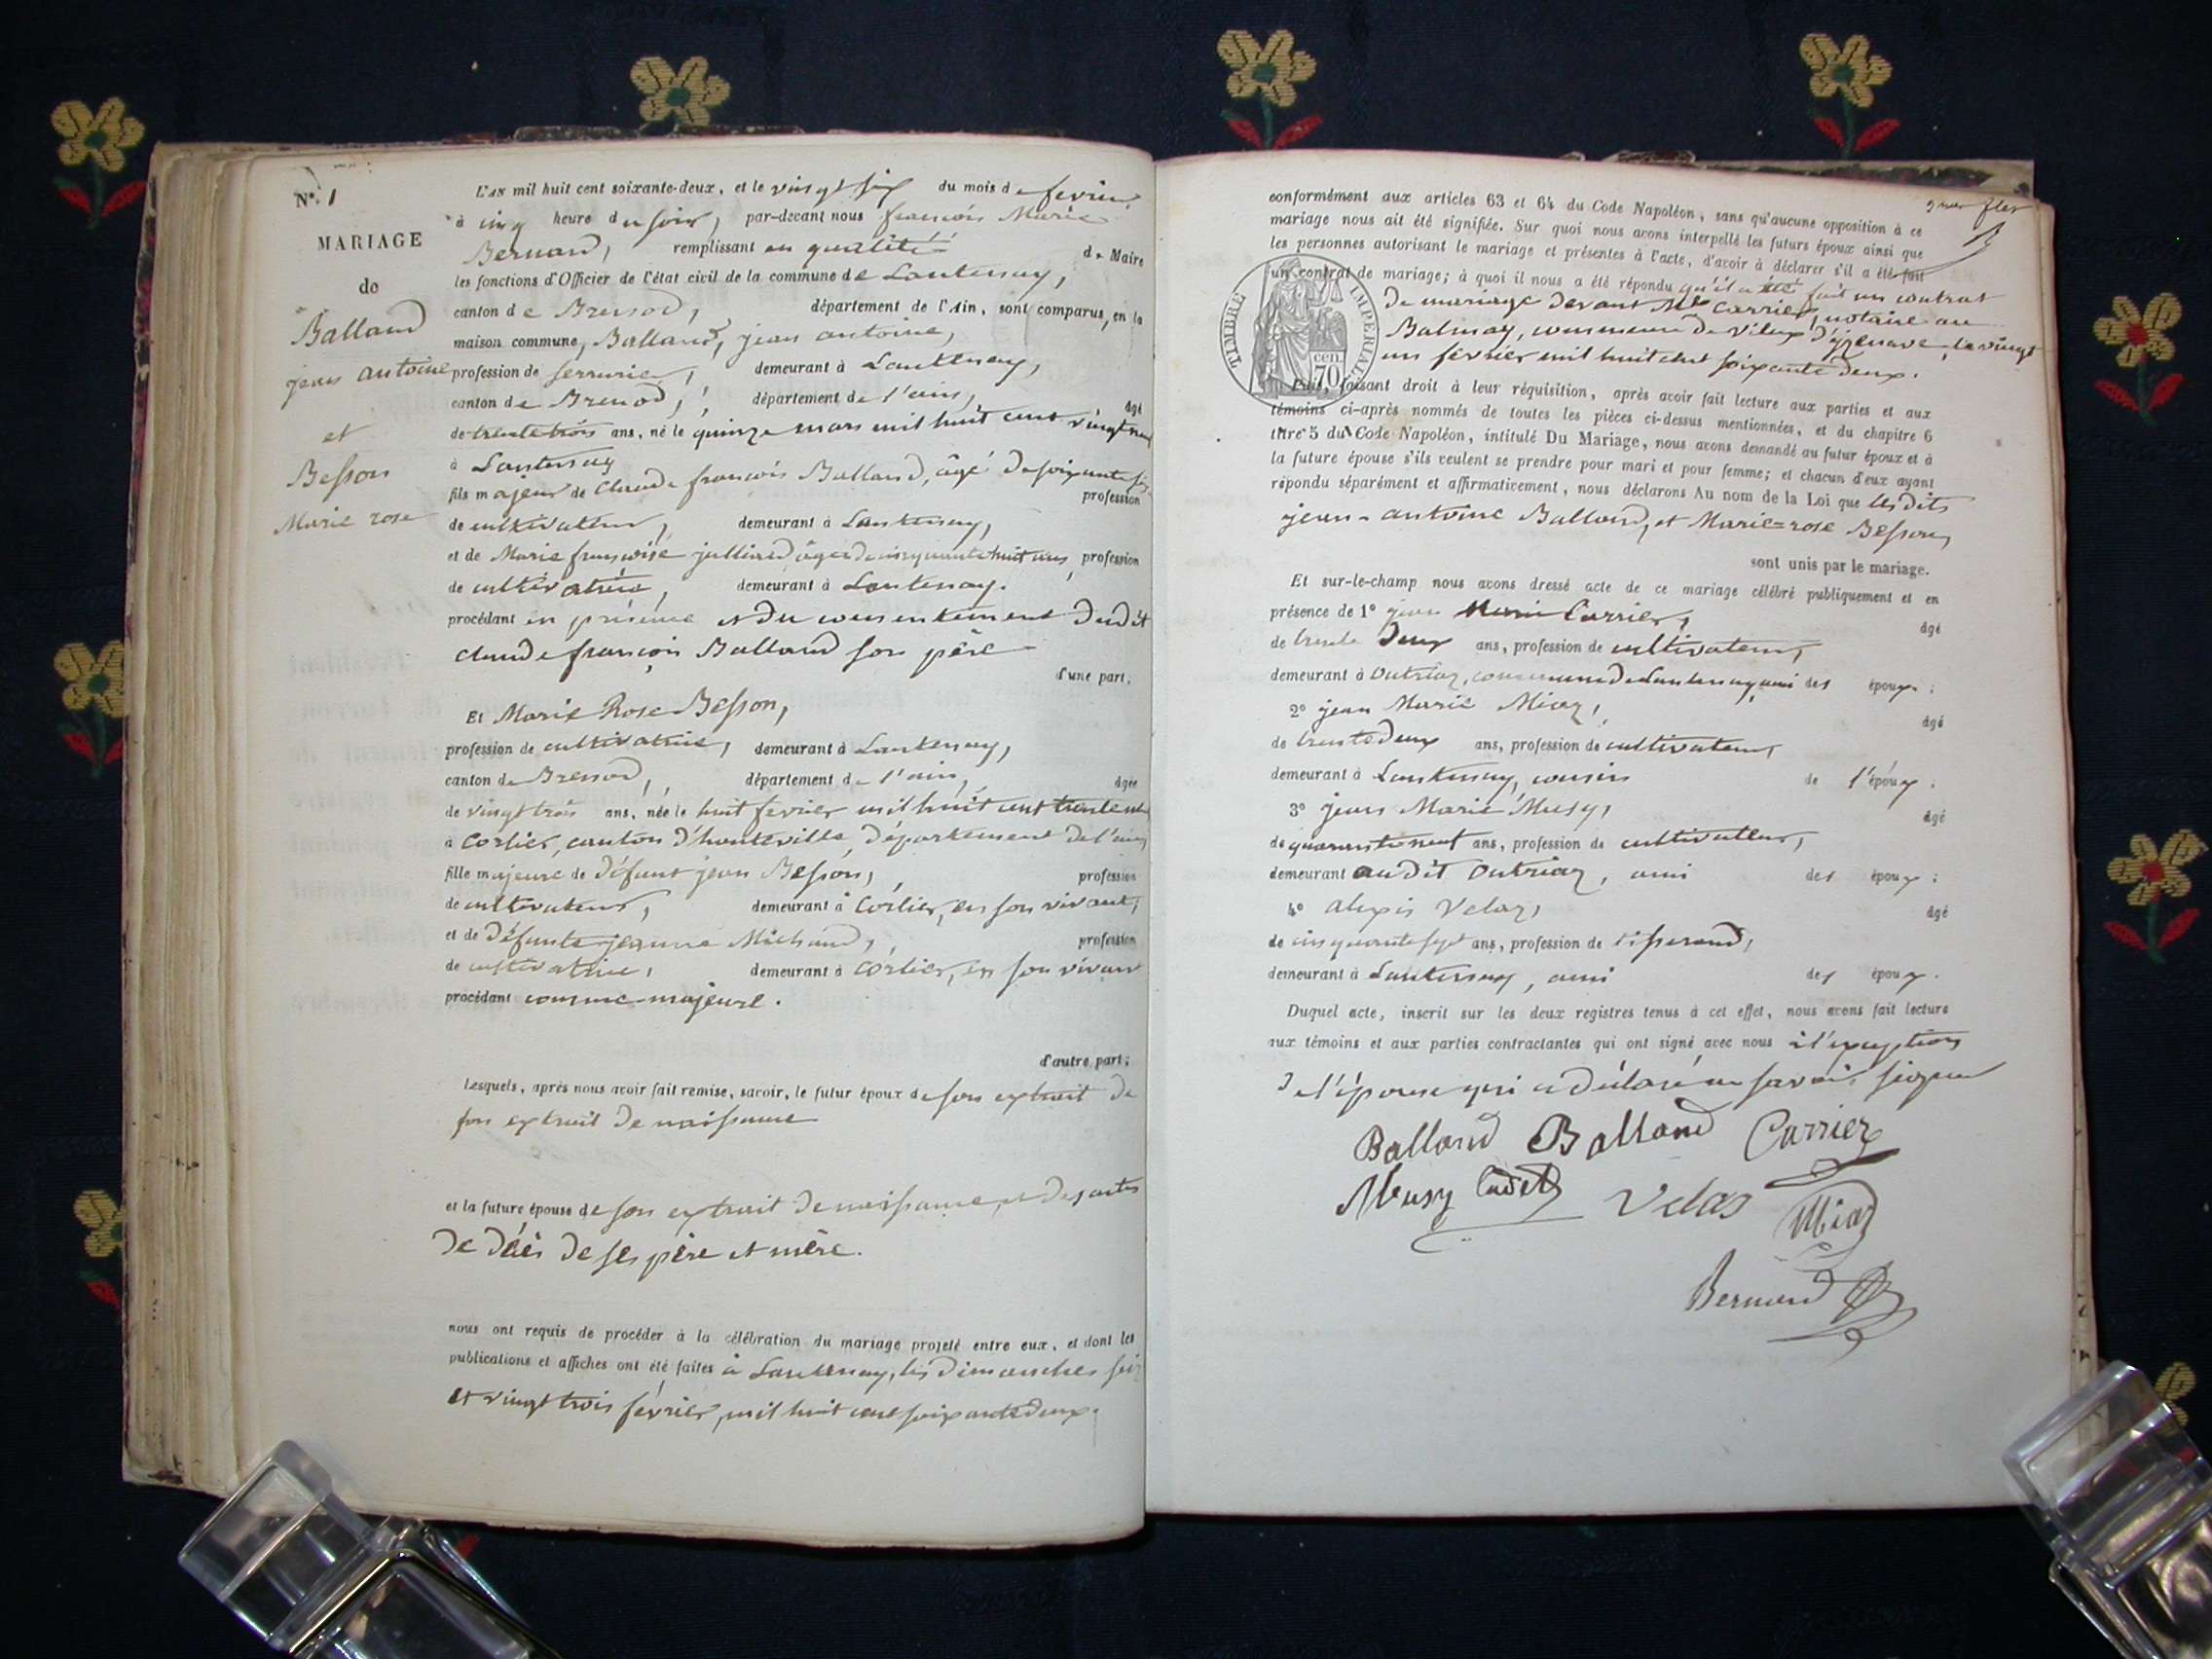 N°. 1
MARIAGE
de
Balland
jean antoine
et
Besson
Marie rose
L'AN mil huit cent soixante-deux, et le vingt six du mois de fevrier
à cinq heure du soir, par-devant nous françois Marie
Bernard, remplissant en qualité de Maire
les fonctions d'Officier de l'état civil de la commune de Lantenay,
canton de Brenod, département de l'Ain, sont comparus, en la
maison commune, Balland, jean antoine,
profession de serrurier, demeurant à Lantenay,
canton de Brenod, département de l'ain, âgé
de trente trois ans, né le quinze mars mil huit cent vingt neuf
à Lantenay
fils majeur de Claude françois Balland, âgé de soixante six profession
de cultivateur, demeurant à Lantenay,
et de Marie françoise julliard âgée de cinquante huit ans, profession
de cultivatrice, demeurant à Lantenay.
procédant en présence et du consentement dudit
claude françois Balland son père
d'une part;
Et Marie Rose Besson,
profession de cultivatrice, demeurant à Lantenay,
canton de Brenod, département de l'ain, âgée
de vingt trois ans, née le huit fevrier mil huit cent trente
à Corlier, canton d'hauteville, département de l'ain,
fille majeure de défunt jean Besson, profession
de cultivateur, demeurant à Corlier, en son vivant,
et de défunte jeanne Michaud, profession
de cultivatrice, demeurant à Corlier, en son vivant
procédant comme majeure.
d'autre part;
Lesquels, après nous avoir fait remise, savoir, le futur époux de son extrait de
son extrait de naissance
et la future épouse de son extrait de naissance, et des actes
de décès de ses père et mère.
nous ont requis de procéder à la célébration du mariage projeté entre eux, et dont les
publications et affiches ont été faites à Lantenay, les dimanches seize
et vingt trois février, mil huit cent soixante deux.
conformément aux articles 63 et 64 du Code Napoléon, sans qu'aucune opposition à ce
mariage nous ait été signifiée. Sur quoi nous avons interpellé les futurs époux ainsi que
les personnes autorisant le mariage et présentes à l'acte, d'avoir à déclarer s'il a été fait
un contrat de mariage; à quoi il nous a été répondu qu'il a été fait un contrat
de mariage devant Me Carrier, notaire au
Balmay, commune de Vieux d'izenave, le vingt
un février mil huit cent soixante deux.
TIMBRE IMPERIAL
70 cen.
Puis, faisant droit à leur réquisition, après avoir fait lecture aux parties et aux
témoins ci-après nommés de toutes les pièces ci-dessus mentionnées, et du chapitre 6
titre 5 du Code Napoléon, intitulé Du Mariage, nous avons demandé au futur époux et à
la future épouse s'ils veulent se prendre pour mari et pour femme; et chacun d'eux ayant
répondu séparément et affirmativement, nous déclarons Au nom de la Loi que lesdits
jean-antoine Balland, et Marie=rose Besson,
sont unis par le mariage.
Et sur-le-champ nous avons dressé acte de ce mariage célébré publiquement et en
présence de 1° jean Marie Carrier, âgé
de trente deux ans, profession de cultivateur,
demeurant à Outriaz, commune de Lantenay, ami des époux;
2° jean Marie Miaz, âgé
de trente deux ans, profession de cultivateur,
demeurant à Lantenay, cousin de l'époux;
3° jean Marie Musy, âgé
de quarante neuf ans, profession de cultivateur,
demeurant audit Outriaz, ami des époux;
4° alexis Velaz, âgé
de cinquante sept ans, profession de tisserand,
demeurant à Lantenay, ami des époux.
Duquel acte, inscrit sur les deux registres tenus à cet effet, nous avons fait lecture
aux témoins et aux parties contractantes qui ont signé avec nous à l'exception
de l'épouse qui a déclaré ne savoir signer
Balland Balland Carrier
Musy Cadet Velas Miaz
Bernard